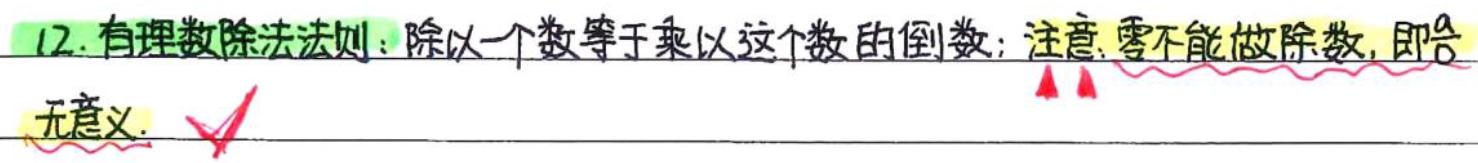 12. 有理数除法法则：除以一个数等于乘以这个数的倒数；注意：零不能做除数，即a/0
无意义.